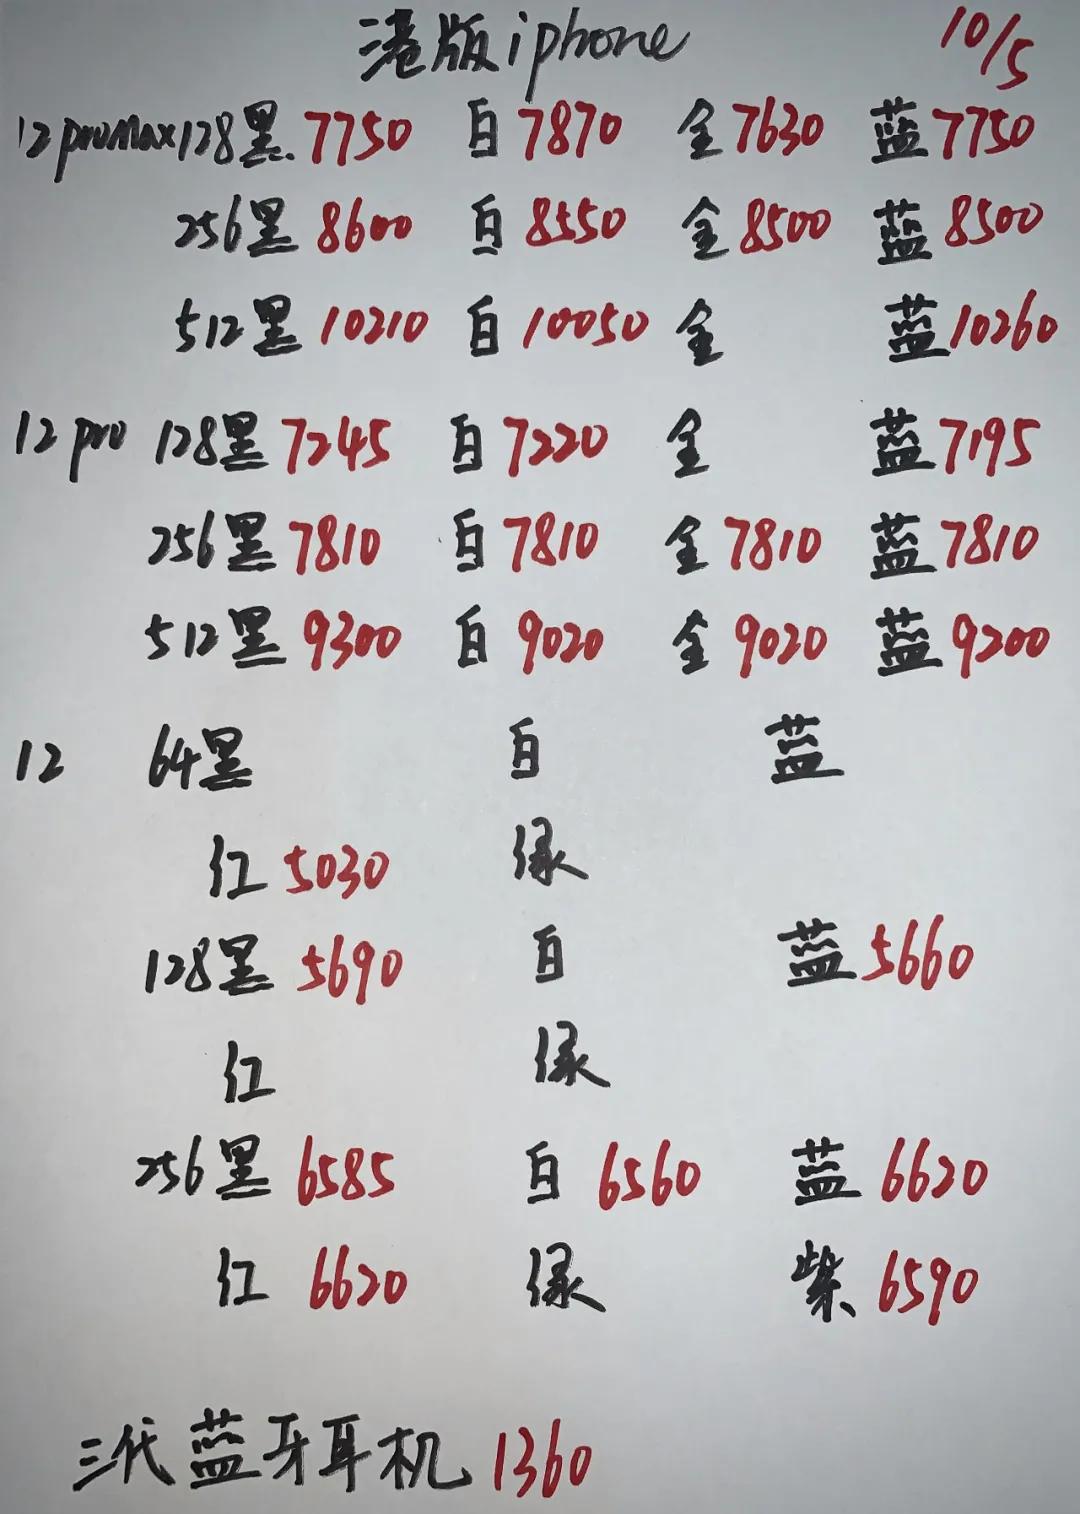 港版iphone 10/5
12promax128黑 7750 白 7870 金 7630 蓝 7750
256黑 8600 白 8550 金 8500 蓝 8500
512黑 10210 白 10050 金 蓝 10260
12pro 128黑 7245 白 7220 金 蓝 7195
256黑 7810 白 7810 金 7810 蓝 7810
512黑 9300 白 9020 金 9020 蓝 9200
12 64黑 白 蓝
红 5030 绿
128黑 5690 白 蓝 5660
红 绿
256黑 6585 白 6560 蓝 6620
红 6620 绿 紫 6590
三代蓝牙耳机 1360